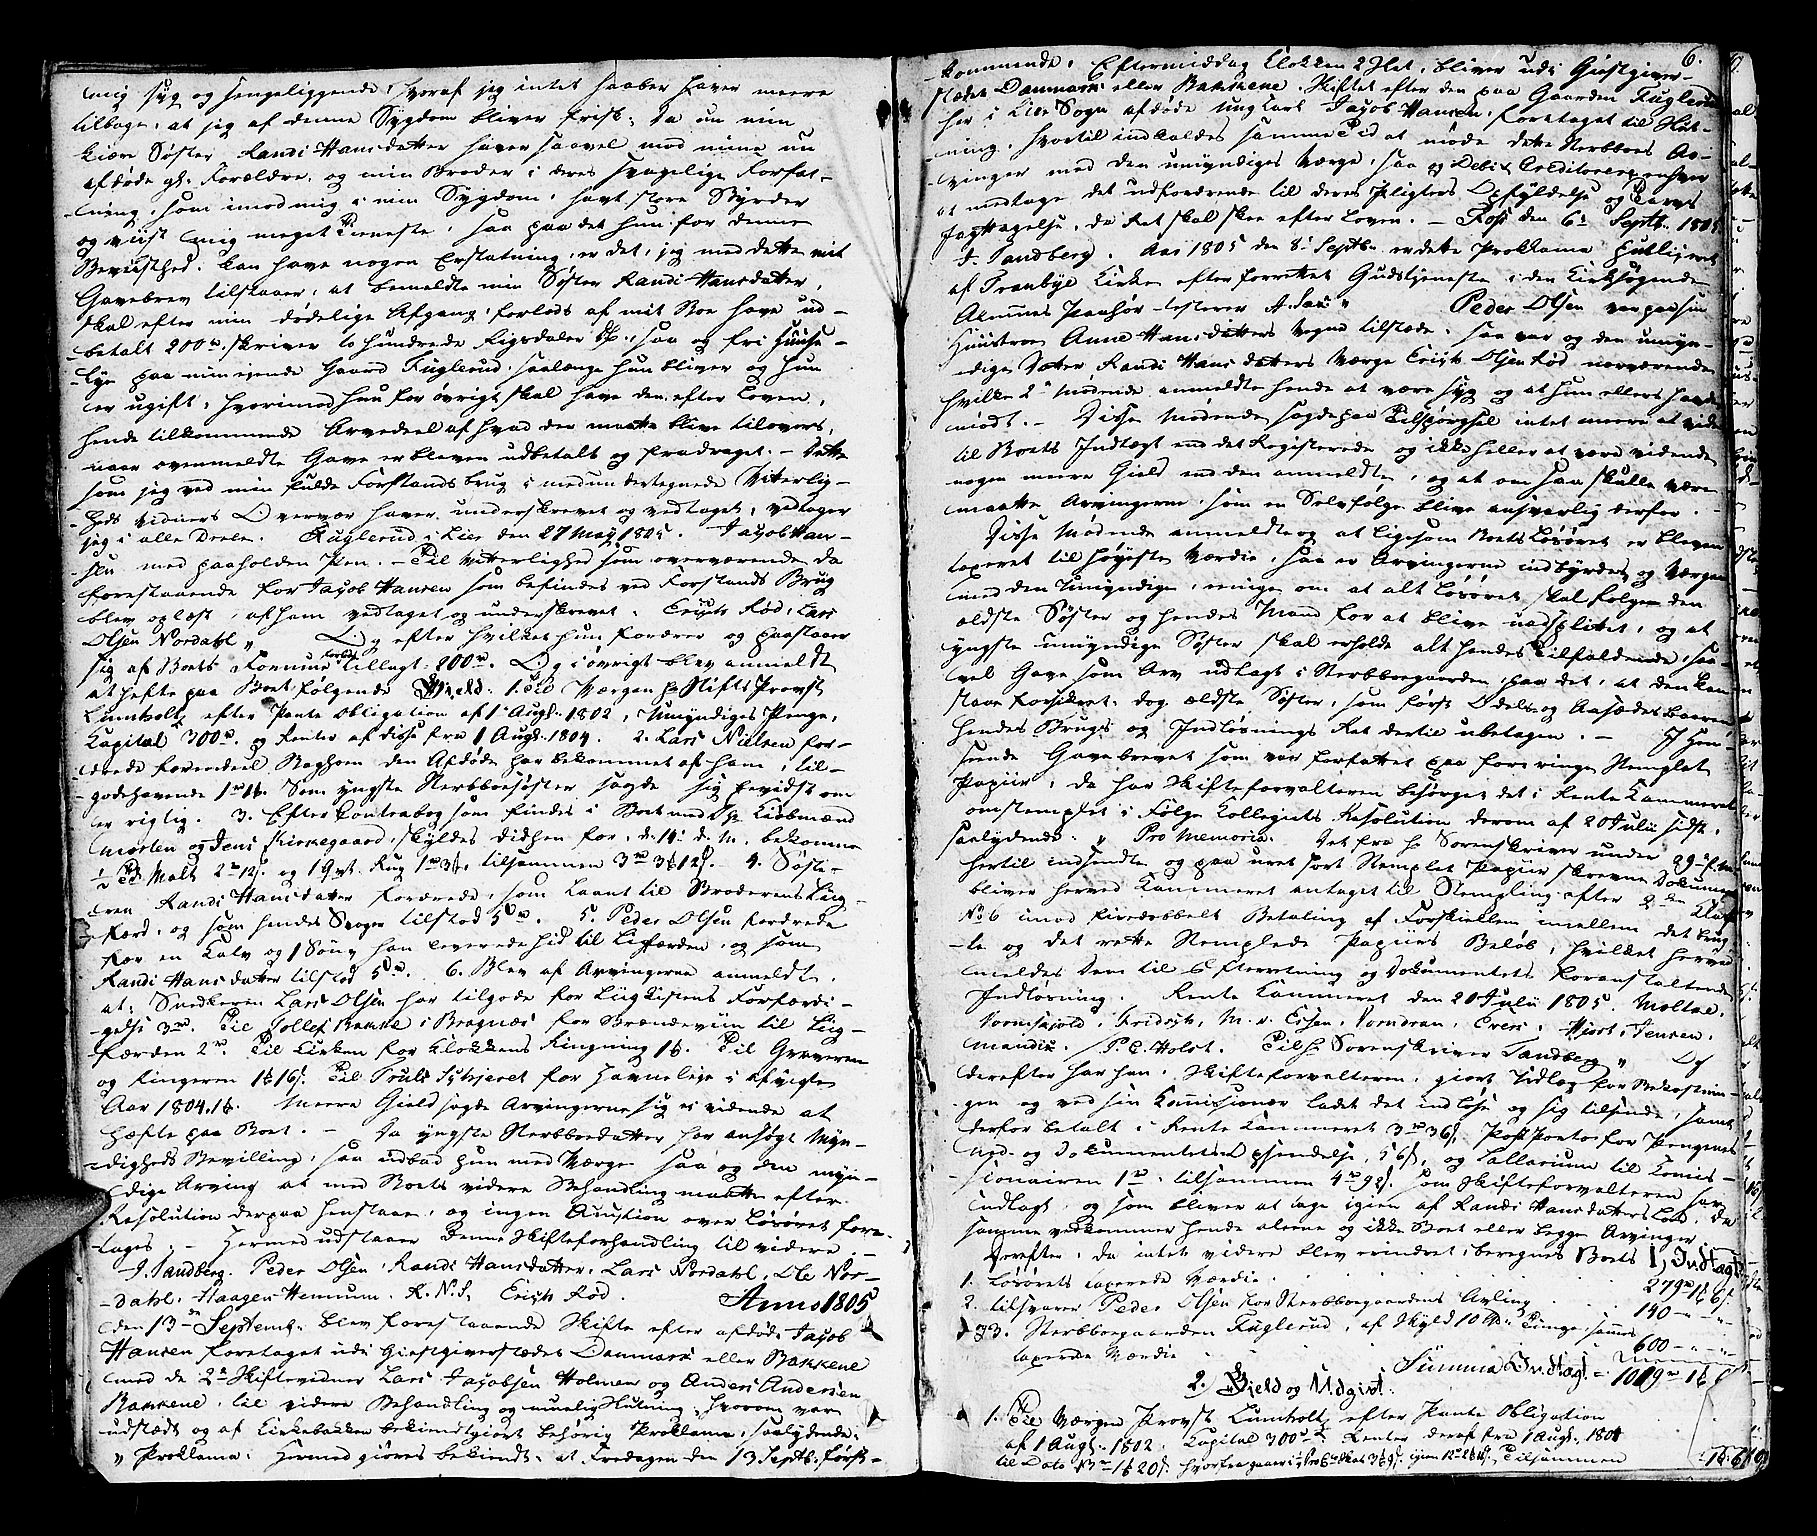 mig syg og sengeliggende, hvoraf jeg intet haaber haver meere
tilbage, at jeg af denne Sygdom bliver frisk; Da nu min
kiære Søster Randi Hansdatter haver saavel mod mine nu
afdøde gl. Forældre, og min Broder i deres svagelige Forfat-
ning, som imod mig i min Sygdom, havt store Byrder
og viist mig meget Tieneste, saa paa det hun for denne
Bevisthed, kan have nogen Erstatning, er det, jeg med dette mit
Gavebrev tilstaaer, at bemeldte min Søster Randi Hansdatter,
skal efter min dødelige Afgang, forlods af mit Boe have ud-
betalt 200rd, skriver to hundrede Rigsdaler, saa og fri Huuse-
lye paa min eiende Gaard Fuglerud, saalænge hun bliver og hun
er ugift, hvorimod hun for øvrigt skal have den, efter Loven,
hende tilkommende Arvedeel af hvad der maatte blive tilovers,
naar ovenmeldte Gave er bleven udbetalt og fradraget. - Dette
som jeg ved min fulde Forstands brug i medundertegnede Vitterlig-
heds Vidners Overvær haver underskrevet og vedtaget, vedtager
jeg i alle Deele. Fuglerud i Lier den 27 May 1805. Jacob Han-
sen med paaholden Pen. - Til Vitterlighed som overværende da
forestaaende for Jacob Hansen som befindes ved Forstands Brug
blev oplæst, af ham vedtaget og underskrevet. Erich Rød, Lars
Olsen Nordahl " Og efter hvilket hun fordrer og paastaaer
sig af Boets Formue forlods tillagt 200rd. Og i øvrigt blev anmeldt
at hefte paa Boet følgende Gield: 1. Til Værgen Hr Stifts Provst
Lumholtz efter Pante Obligation af 1 Augt. 1802, Umyndiges Penge,
Kapital 300rd. og Renter af disse fra 1 Augt. 1804. 2. Lars Nielsen for-
drede den Afdøde har bekommet af ham, til-
godehavende Som yngste Sterbboesøster sagde sig bevidst om
er rigtig. 3. Efter Contrabog som findes i Boet med Hr Kiøbmænd
Morten og Jens Kirkegaard, skyldes didhen for, d. 14 d. M. bekomme
Malt 2rd 12s. og Rug tilsammen 4. Søste-
ren Randi Hansdatter fordrede, som Laant til Broderens Liig-
færd, og som hendes Svoger tilstod 5rd. 5. Peder Olsen fordrede
for en Kalv og 1 Souv han leverede hid til Ligfærden, og som
Randi Hansdatter tilstod 5rd. 6. Blev af Arvingerne anmeldt
at, Snedkeren Lars Olsen har tilgode for Liigkistens Forfærdi-
gelse 3rd. Til Tollef Bakke i Bragnæs for Brændeviin til Liig-
færden 2rd. Til Kirken for Klokkens Ringning Til Graveren
og Ringeren Til Truls for Havneleye i afvigte
Aar 1804. Meere Gield sagde Arvingerne sig ei vidende at
hæfte paa Boet. - Da yngste Sterbboedatter har ansøgt Myn-
digheds Bevilling, saa udbad hun med Værge saa og den myn-
dige Arving at med Boets videre Behandling maatte efter
Resolution derpaa henstaae, og ingen Auction over Løsøret fore-
tages, - Hermed udstaaer denne Skifteforhandling til videre. -
J. Sandberg. Peder Olsen, Randi Hansdatter, Lars Nordahl, Ole Nor-
dahl. Haagen Hennum. Erich Rød. Anno 1805
den 13de Septemb. blev forestaaende Skifte efter afdøde Jacob
Hansen foretaget udi Giestgiverstædet Danmark eller Bakkene
med de 2de Skiftevidner Lars Jacobsen Holmen og Anders Andersen
Bakkene, til videre Behandling og muelig Slutning, hvorom var
udstædt og af Kirkebakken bekiendtgiort behørig Proklama, saalydende:
" Proklama: Hermed giøres bekiendt, at Fredagen den 13 Septb. først-
6.
kommende, Eftermiddag Klokken 2 Slet, bliver udi Giestgiver-
stædet Danmark eller Bakkene, Skiftet efter den paa Gaarden Fuglerud
her i Lier Sogn afdøde ungkarl Jacob Hansen, foretaget til Slut-
ning, hvortil indkaldes samme Tid at møde dette Sterbboes Ar-
vinger med den umyndiges Værge, saa og Debit Creditorer, enhver
at modtage det udfordrende til deres Pligters Opfyldelse og Tarvs
Iagttagelse, da Ret skal skee efter Loven. - Foss den 6 Septb. 1805
J. Sandberg. Aar 1805 den 8 Septb. er dette Proklama publiceret
af Tranbye Kirke efter forrettet Gudstieneste i den Kirkesøgende
Almues Paahør, testerer Peder Olsen var paa sin
Huustroe Anne Hansdatters Vegne tilstæde, saa var og den umyn-
dige Datter Randi Hansdatters Værge Erich Olsen Rød nærværende
hvilke 2de Mødende anmeldte hende at være syg og at hun ellers havde
mødt. - Disse Mødende sagde paa Tilspørgsel intet meere at vide
til Boets Indtægt end det Registerede og ikke heller at være vidende
nogen meere Gield end den anmeldte, og at om saa skulle være
maatte Arvingerne, som en Selvfølge blive ansvarlig derfor. -
Disse Mødende anmeldte og at ligesom Boets Løsøret er bleven
taxeret til høyeste Værdie, saa er Arvingerne indbyrdes og Værgen
med den Umyndige, enige om at alt Løsøret skal følge den
ældste Søster og hendes Mand for at blive uadsplittet, og at
yngste umyndige Søster skal erholde alt hendes Tilfaldende, saa-
vel Gave som Arv udlagt i Sterbboegaarden, paa det, at den kan
staae forsikret, dog ældste Søster, som først Odels- og Aasædesbaaren
hendes Brugs og Indløsnings Ret dertil ubetagen. - I Hen-
seende Gavebrevet som var forfattet paa for ringe Stemplet
Papiir, da har Skifteforvalteren besørget det i Rente Kammeret
omstemplet i Følge Kollegiets Resolution derom af 20 Julii sidst,
saalydende: " Pro Memoria. Det fra Hr Sorenskriver under 29de f. M.
hertil indsendte og paa uret sort Stemplet Papiir skrevne Dokument
bliver herved Kammeret antaget til Stempling efter 2den Klasse
No 6 imod firedobbelt Betaling af Forskiellen imellem det brug-
te og det rette Stemplede Papiirs Beløb, hvilket herved
meldes Dem til Efterretning og Dokumentets foranstaltende
Indløsning. Rente Kammeret den 20 Julii 1805. Moltke,
Wormskjold, Fridsch, M. v. Essen, Wormdran, Hiort, Jensen,
P. C. Holst. Til Hr Sorenskriver Sandberg " Og
derefter har han, Skifteforvalteren, giort Udlæg for Bekostnin-
gen og ved sin Komissionær ladet det indløse og sig tilsende, samt
derfor betalt i Rente Kammeret 3rd 36s. Post Porto for Pengenes
Ned- og Dokumentets Opsendelse, 56s, og Sallarium til Komis-
sionairen 1rd, tilsammen 4rd 92s. som Skifteforvalteren har
Udlagt, og som bliver at tage igien af Randi Hansdatters Lod, da
samme vedkommer hende alene og ikke Boet eller begge Arvinger.
Derefter, da intet videre blev erindret, beregnes Boets 1, Indtægt
1. Løsørets taxerede Værdie . . . 279rd
2. tilsvarer Peder Olsen for Sterbboegaardens Avling . . . 140 - " -
3. Sterbboegaarden Fuglerud, af Skyld 10 Tunge, samt
taxerede Værdie . . . 600 - " -
Summa Indtægt - 1019rd
2. Gield og Udgivt.
1. Til Værgen Provst Lumholtz efter Pante Obligation
af 1 Augt. 1802. Kapital 300rd Renter deraf fra 1 Augt. 1804
til Dato Tilsammen